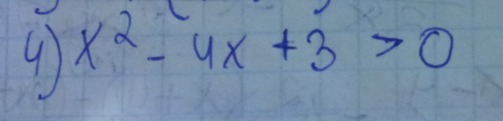 4) x² - 4x + 3 > 0